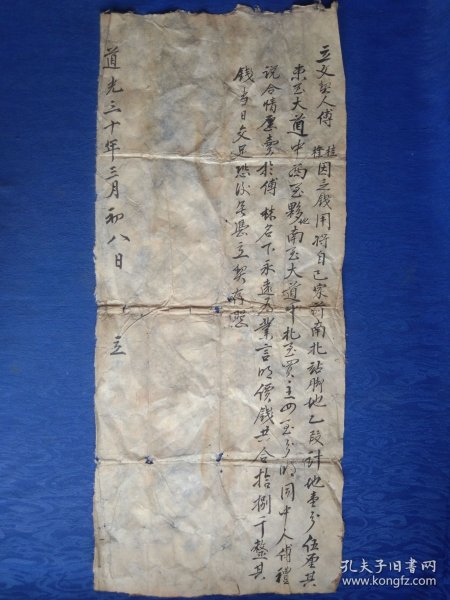 立文契人傅桂 Pei因乏钱用将自己家前南北站脚地乙段计地壹分伍厘其
東至大道中西至夥地南至大道中北至買主四至分明同中人傅禮
说合情愿賣於傅林名下永遠為業言明價錢共合拾捌千整其
錢当日交足恐後無憑立契存照
道光三十年三月初八日 立
孔夫子旧书网
www.kongfz.com